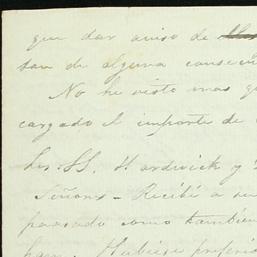 que dar aviso de
tan de alguna consecu
No he visto mas q
cargado el importe de
los SS. Hardwick y
Señores - Recibí a su
pasado como tambien
hay. Hubiese preferi